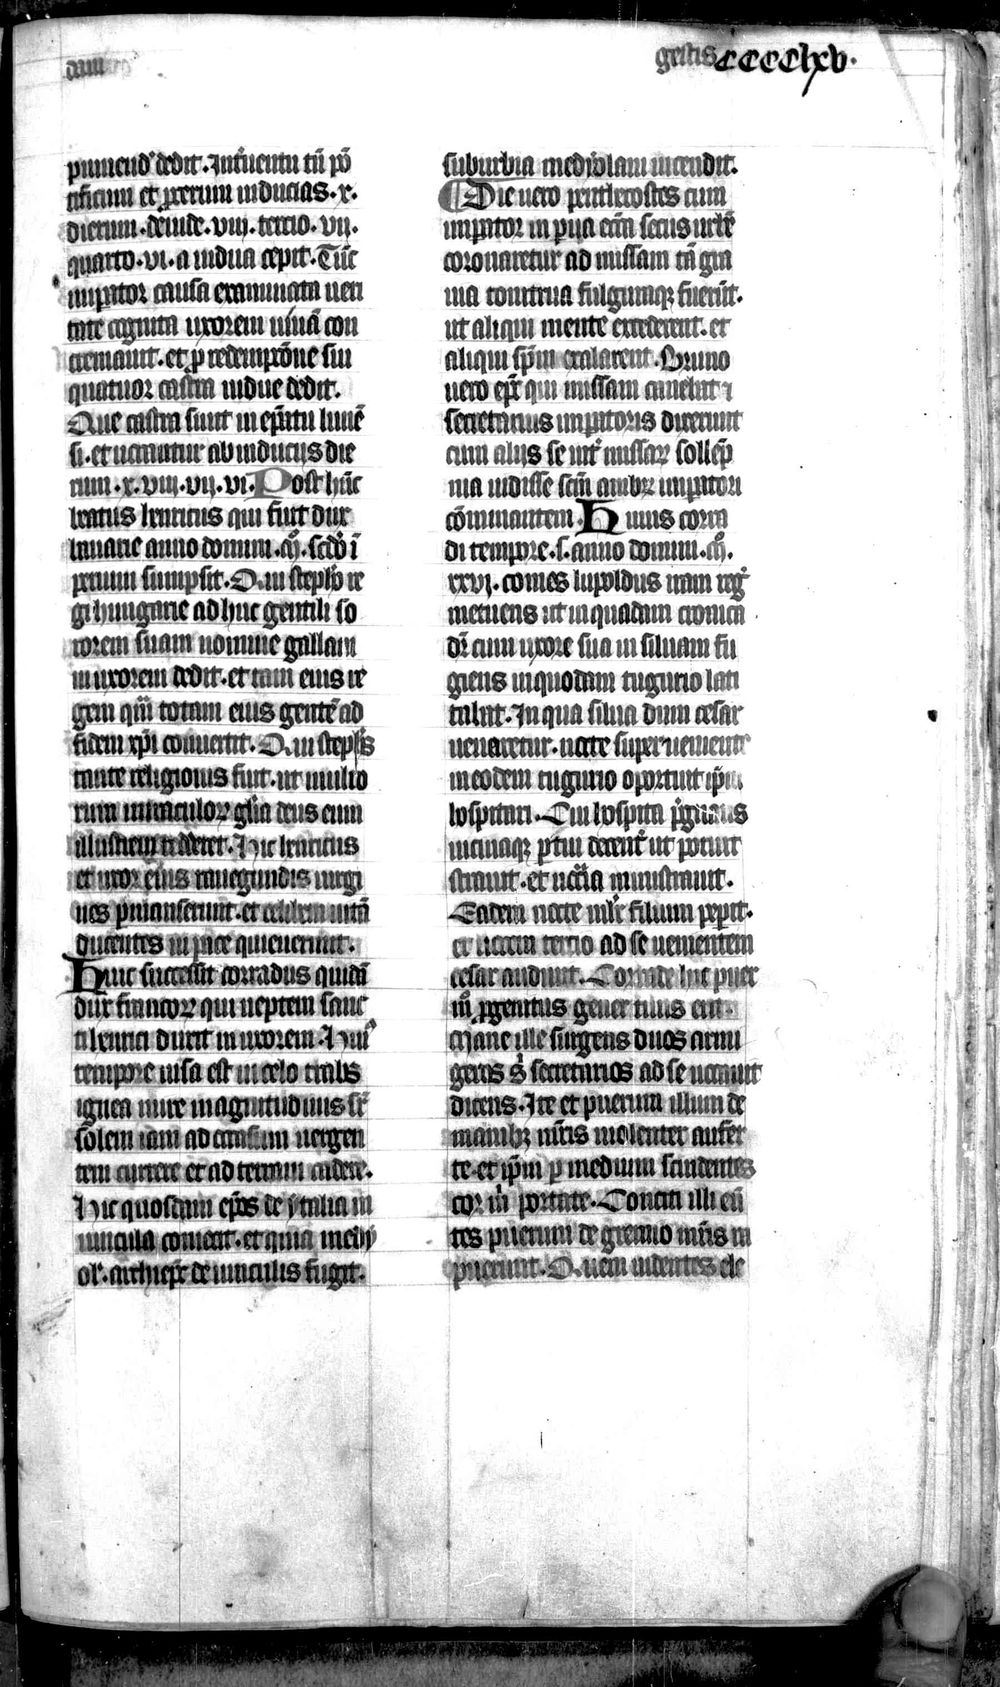 gestis CCCClxv.
puniend' dedit. Int'uentu tn̄ pō
tificum et p̲cerum inducias .x.
dierum. deinde .viij. tercio .vij.
quarto .vi. a uidua cepit. Tūc
imp̲ator causa examinata ueri
tate cognita uxorem uiuā con
cremauit. et p̲ redempc̄one sui
quatuor castra uidue dedit.
Que castra sunt in ep̄atu lunē
si. et uocantur ab inducijs die
rum .x. viij. vij. vi. Post hūc
beatus henricus qui fuit dux
bauarie anno domini .m̊. scd̄o ī
perium sumpsit. Qui steph̄o re
gi hungarie adhuc gentili so
rorem suam nomine gallam
in uxorem dedit. et tam eius re
gem qm̄ totam eius gentē ad
fidem xp̄i conuertit. Qui steph̄s
tante religionis fuit. ut multo
rum miraculoꝝ gl̄ia deus eum
illustrem redderet. Hic henricus
et uxor eius ranegundis uirgi
nes p̲manserunt. et celibem uitā
ducentes in pace quieuerunt.
Huic successit corradus quidā
dux francoꝝ qui neptem sanc
ti henrici duxit in uxorem. Hui9
tempore uisa est in celo trabs
ignea mire magnitudinis sr̄
solem iam ad occasum uergen
tem currere et ad terram cadere.
Hic quosdam ep̄os de ytalia in
uincula coniecit. et quia medy
ol'. archiep̄c de uinculis fugit.
suburbia medyolani incendit.
Die uero penthecostes cum
imp̲ator in p̲ua ecc̄a secus urbē
coronaretur ad missam tā gra
uia tonitrua fulguraqꝫ fuerūt.
ut aliqui mente excederent. et
aliqui sp̄m exalarent. Bruno
uero ep̄c qui missam canebat ⁊
secretarius imp̲atoris dixerunt
cum alijs se int' missaꝝ sollēp
nia uidisse scm̄ ambr̄ imp̲atori
cōminantem. Huius corra
di tempore .s. anno domini .m̊.
xxvj. comes lupoldus iram reg'
metuens ut in quadam cronica
dr̄ cum uxore sua in siluam fu
giens in quodam tugurio lati
tabat. In qua silua dum cesar
uenaretur. nocte superueniente
in eodem tugurio oportuit ip̄m
hospitari. Cui hospita p̲gnans
uicinaqꝫ p̲tui decent' ut potuit
strauit. et nec̄cia ministrauit.
Eadem nocte ml'r filium peperit.
et uocem tercio ad se uenientem
cesar audiuit. Corrade hic puer
m̊ p̲genitus gener tuus erit.
Mane ille surgens duos armi
geros s' secretarios ad se uocauit
dicens. Ite et puerum illum de
manibꝫ mr̄is uiolenter aufer
te. et ip̄m p̲ medium scindentes
cor m̊ portate. Conciti illi eū
tes puerum de gremio mr̄is ra
puerunt. Quem uidentes ele